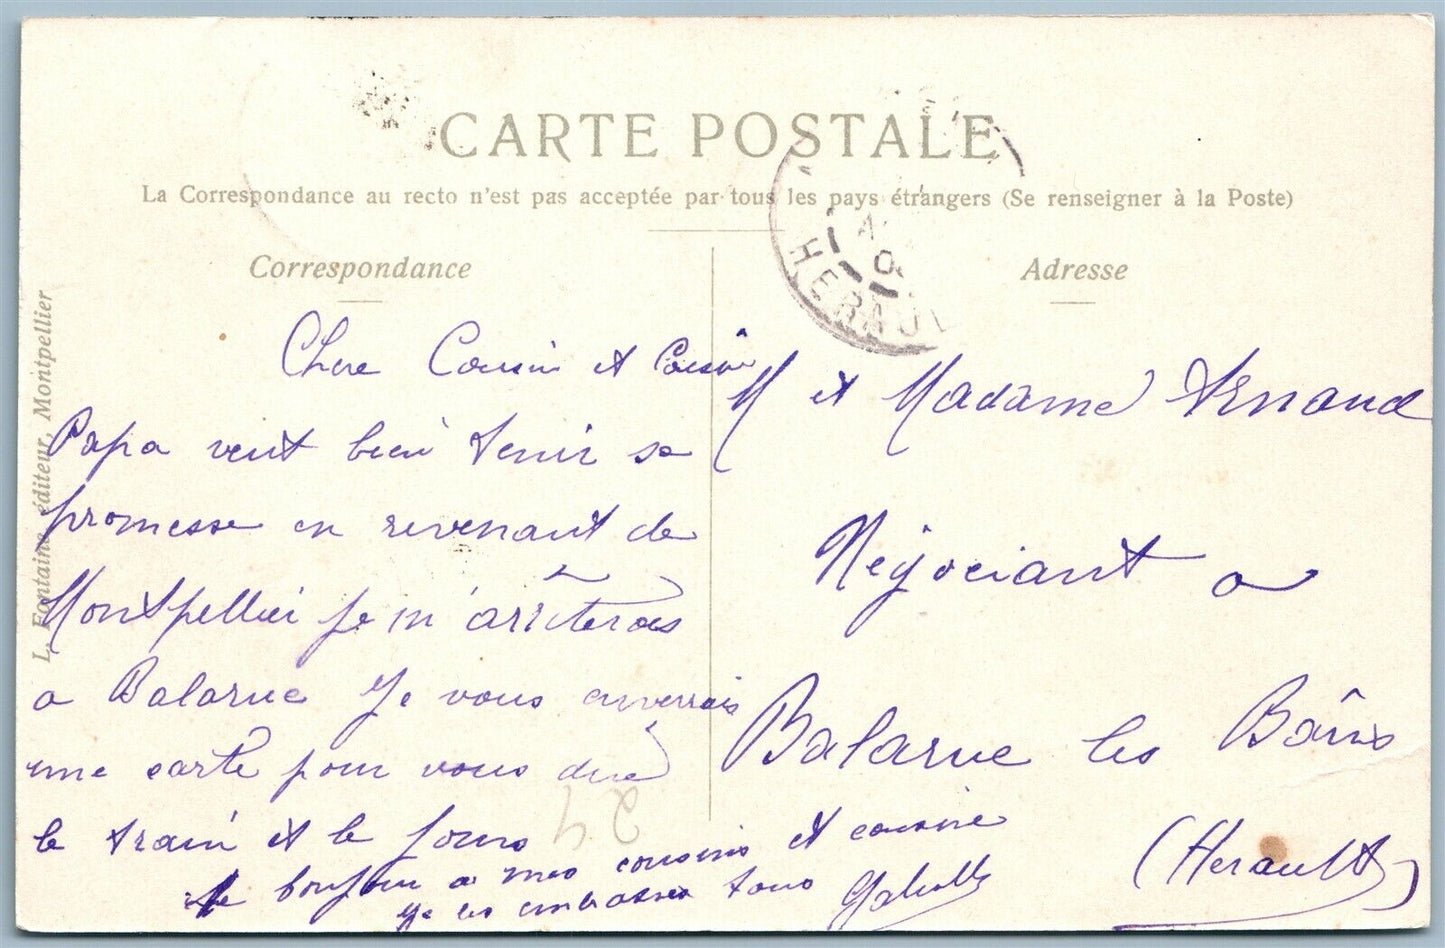 CARTE POSTALE
La Correspondance au recto n'est pas acceptée par tous les pays étrangers (Se renseigner à la Poste)
Correspondance
Chere Cousin et Cousine
Papa veut bien tenir sa
promesse en revenant de
Montpellier je m'arrêterais
a Balaruc Je vous enverrais
une carte pour vous dire
le train et le jours
le bonjour a mes cousins et cousine
Je les embrasse tous
24
Adresse
HERAUL
M et Madame Arnaud
Négociant a
Balaruc les Bains
(Herault)
L. Fontaine éditeur, Montpellier